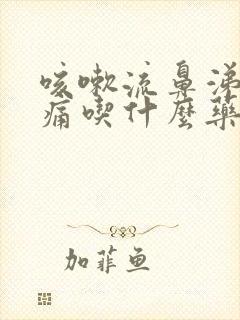 咳嗽流鼻涕
痛喫什麼藥
加菲鱼